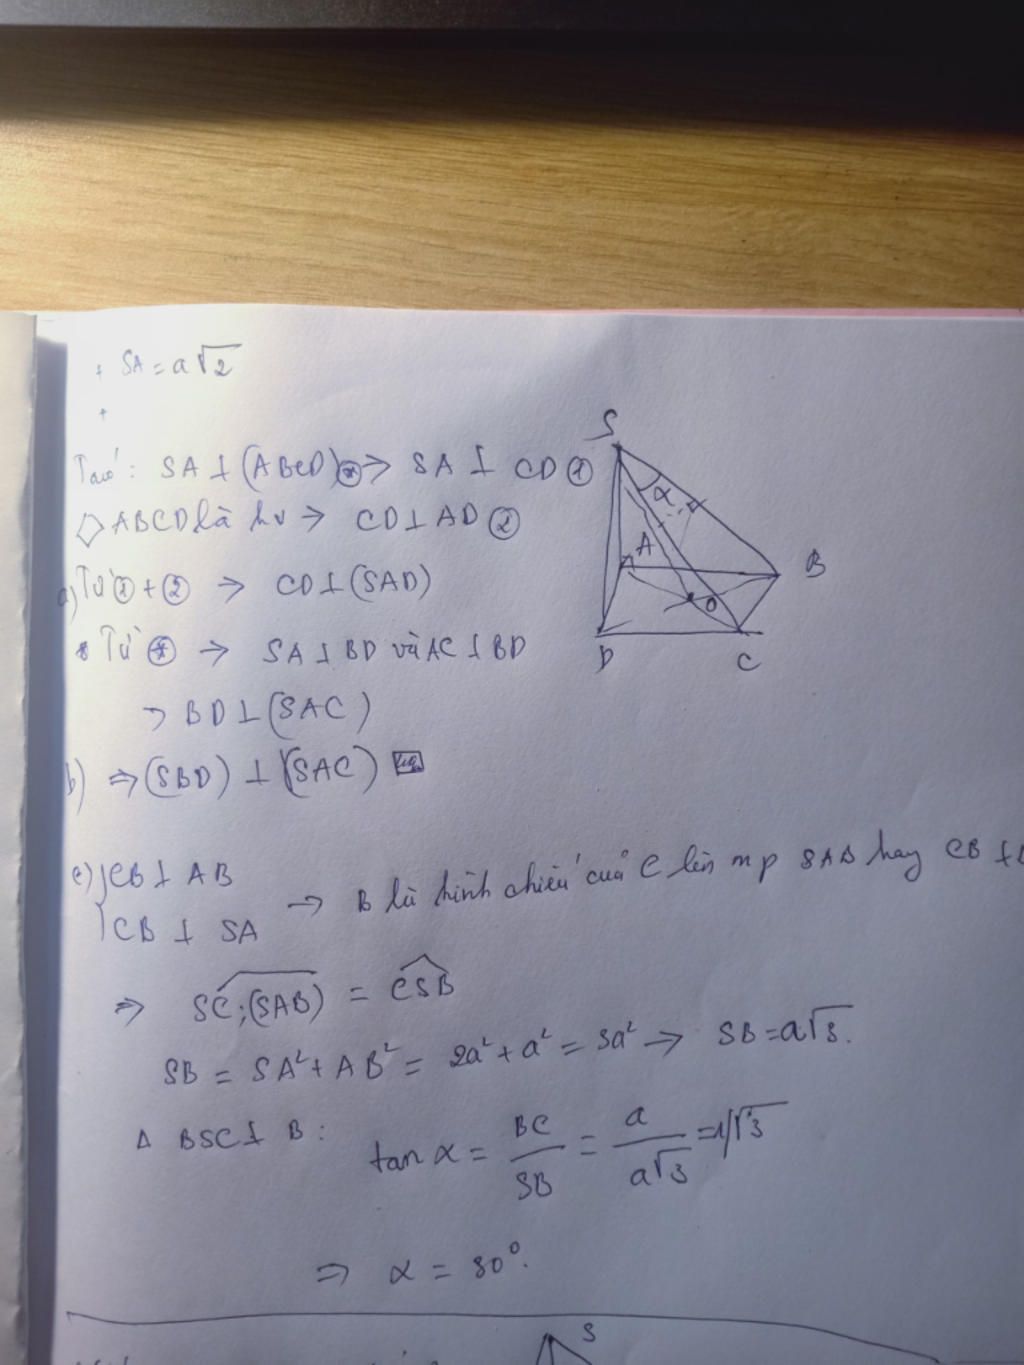 + SA = a√2
+
Taco': SA ⊥ (ABCD) ⊛ → SA ⊥ CD ①
◇ ABCD là hv → CD ⊥ AD ②
a) Từ ① + ② → CD ⊥ (SAD)
* Từ ⊛ → SA ⊥ BD và AC ⊥ BD
→ BD ⊥ (SAC)
b) ⇒ (SBD) ⊥ (SAC)
c) { CB ⊥ AB
{ CB ⊥ SA → B là hình chiếu của C lên mp SAB hay CB ⊥
⇒ SC;(SAB) = CSB
SB = SA² + AB² = 2a² + a² = 3a² → SB = a√3.
Δ BSC ⊥ B: tan α = BC/SB = a/a√3 = 1/√3
⇒ α = 30°.
S
α
A
B
O
D
C
S